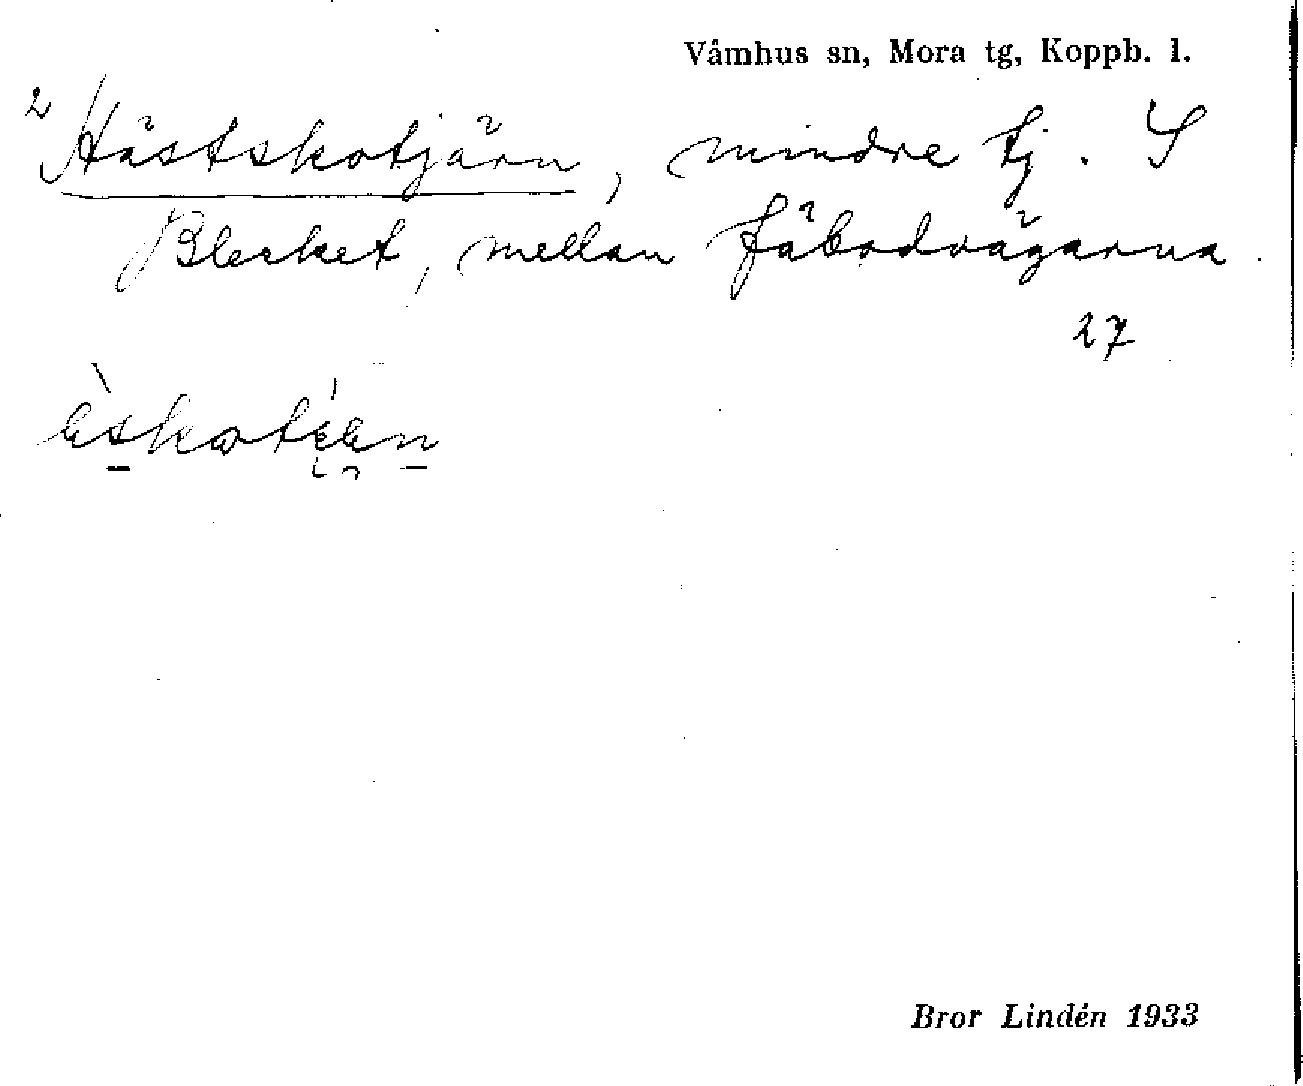 Våmhus sn, Mora tg, Koppb. l.
2 Hästskotjärn, mindre tj. S
Blecket, mellan fäbodvägarna.
27
Bror Lindén 1933